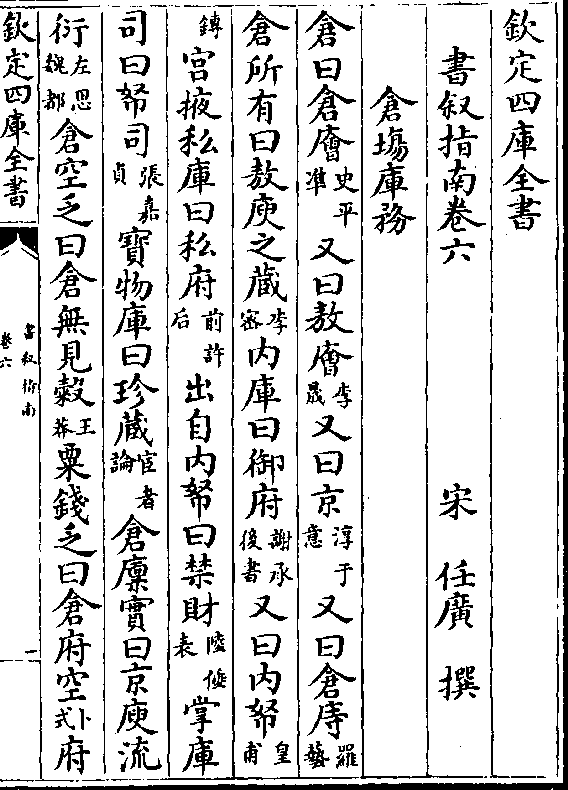 欽定四庫全書
書叙指南卷六
宋 任廣 撰
倉塲庫務
倉曰倉廥史平準又曰敖廥李晟又曰京淳于意又曰倉庤羅藝
倉所有曰敖庾之蔵李密内庫曰御府謝承後書又曰内帑皇甫
鎛宮掖私庫曰私府前許后出自内帑曰禁財陸倕表掌庫
司曰帑司張嘉貞寳物庫曰珍蔵宦者論倉廩實曰京庾流
衍左思魏都倉空乏曰倉無見糓王莽粟錢乏曰倉府空卜式府
欽定四庫全書
書叙指南
卷六
一